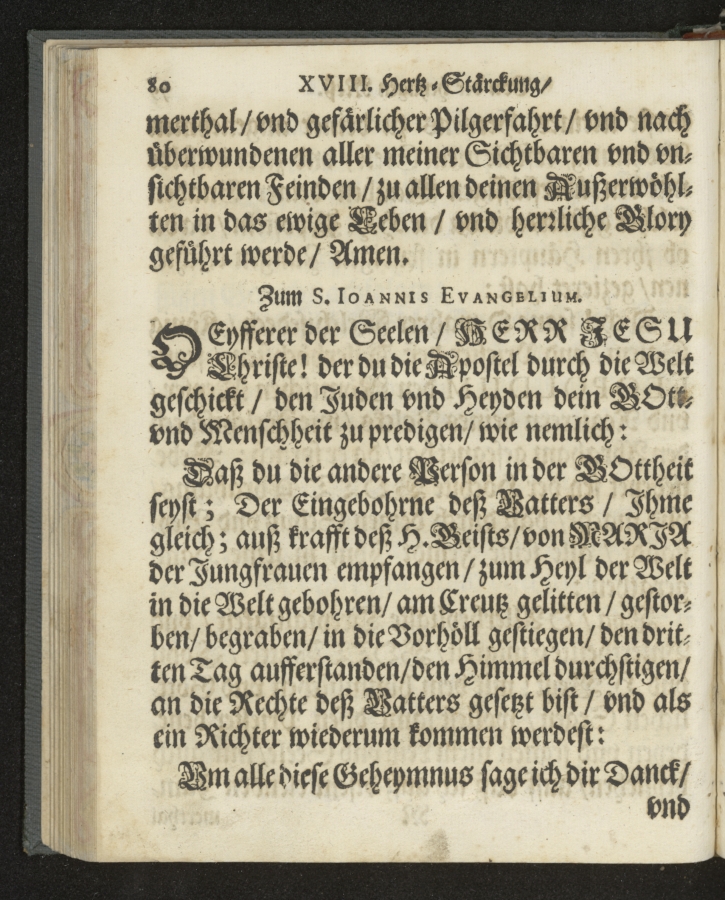 80 XVIII. Hertz-Stärckung/
merthal/vnd gefärlicher Pilgerfahrt/ vnd nach
überwundenen aller meiner Sichtbaren vnd vn-
sichtbaren Feinden/zu allen deinen Außerwöhl-
ten in das ewige Leben / vnd herrliche Glory
geführt werde/ Amen.
Zum S. IOANNIS EVANGELIUM.
O Eyfferer der Seelen / HERR JESU
Christe! der du die Apostel durch die Welt
geschickt / den Juden vnd Heyden dein GOtt-
vnd Menschheit zu predigen/ wie nemlich:
Daß du die andere Person in der GOttheit
seyst; Der Eingebohrne deß Vatters / Ihme
gleich; auß krafft deß H. Geists/von MARJA
der Jungfrauen empfangen/zum Heyl der Welt
in die Welt gebohren/ am Creutz gelitten / gestor-
ben/ begraben/ in die Vorhöll gestiegen/ den drit-
ten Tag aufferstanden/den Himmel durchstigen/
an die Rechte deß Vatters gesetzt bist / vnd als
ein Richter wiederum kommen werdest:
Vm alle diese Geheymnus sage ich dir Danck/
vnd